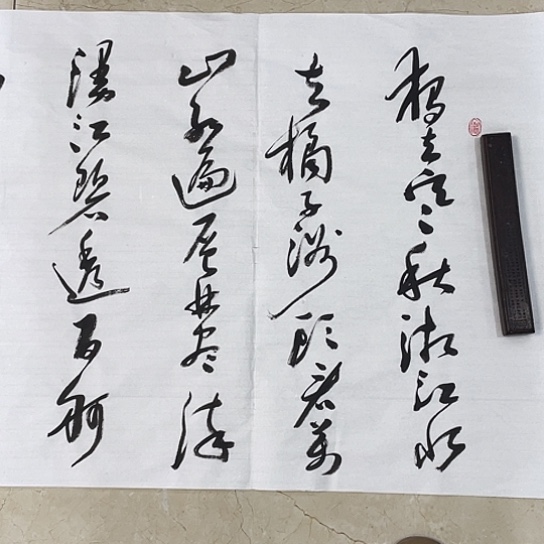 独立寒秋湘江北
去橘子洲头看万
山红遍层林尽染
漫江碧透百舸